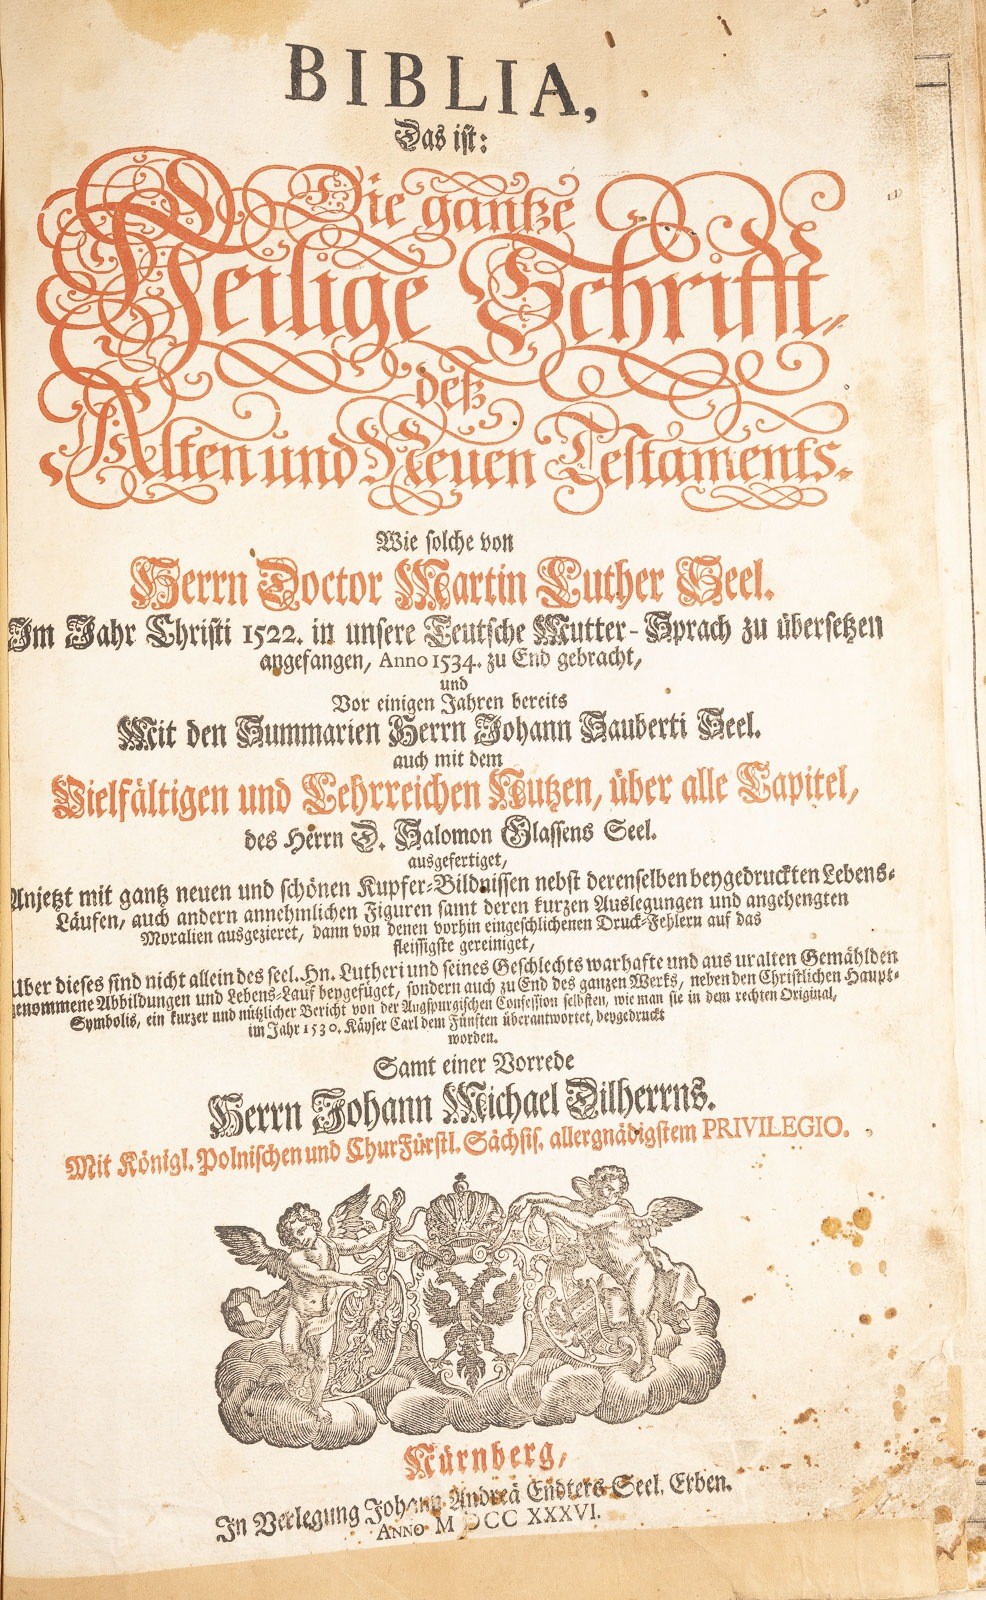 BIBLIA,
Das ist:
Die gantze
Heilige Schrifft,
deß
Alten und Neuen Testaments.
Wie solche von
Herrn Doctor Martin Luther Seel.
Im Jahr Christi 1522. in unsere Teutsche Mutter-Sprach zu übersetzen
angefangen, Anno 1534. zu End gebracht,
und
Vor einigen Jahren bereits
Mit den Summarien Herrn Johann Sauberti Seel.
auch mit dem
Vielfältigen und Lehrreichen Nutzen, über alle Capitel,
des Herrn D. Salomon Glassens Seel.
ausgefertiget,
Anjetzt mit gantz neuen und schönen Kupfer-Bildnissen nebst derenselben beygedruckten Lebens-
Läufen, auch andern annehmlichen Figuren samt deren kurzen Auslegungen und angehengten
Moralien ausgezieret, dann von denen vorhin eingeschlichenen Druck-Fehlern auf das
fleissigste gereiniget,
Uber dieses sind nicht allein des seel. Hn. Lutheri und seines Geschlechts warhafte und aus uralten Gemählden
genommene Abbildungen und Lebens-Lauf beygefüget, sondern auch zu End des ganzen Werks, neben den Christlichen Haupt-
Symbolis, ein kurzer und nützlicher Bericht von der Augspurgischen Confession selbsten, wie man sie in dem rechten Original,
im Jahr 1530. Käyser Carl dem Fünften überantwortet, beygedruckt
worden.
Samt einer Vorrede
Herrn Johann Michael Dilherrns.
Mit Königl. Polnischen und ChurFürstl. Sächsis. allergnädigstem PRIVILEGIO.
Nürnberg,
In Verlegung Johann Andreä Endters Seel. Erben.
ANNO M DCC XXXVI.